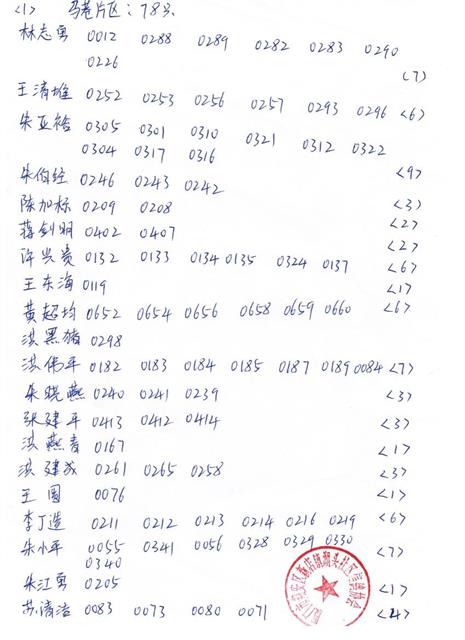 <1> 马巷片区：78只
林志勇 0012 0288 0289 0282 0283 0290
0226 <7>
王清堆 0252 0253 0256 0257 0293 0296 <6>
朱亚裕 0305 0301 0310 0321 0312 0322
0304 0317 0316 <9>
朱伯经 0246 0243 0242 <3>
陈加标 0209 0208 <2>
蒋剑明 0402 0407 <2>
许兴贵 0132 0133 0134 0135 0324 0137 <6>
王东海 0119 <1>
黄超均 0652 0654 0656 0658 0659 0660 <6>
洪黑猪 0298
洪伟平 0182 0183 0184 0185 0187 0189 0084 <7>
朱晓燕 0240 0241 0239 <3>
张建平 0413 0412 0414 <3>
洪燕青 0167 <1>
洪建成 0261 0265 0258 <3>
王国 0076 <1>
李丁造 0211 0212 0213 0214 0216 0219 <6>
朱小平 0055 0341 0056 0328 0329 0330
0340 <7>
朱江勇 0205 <1>
苏清洁 0083 0073 0080 0071 <4>